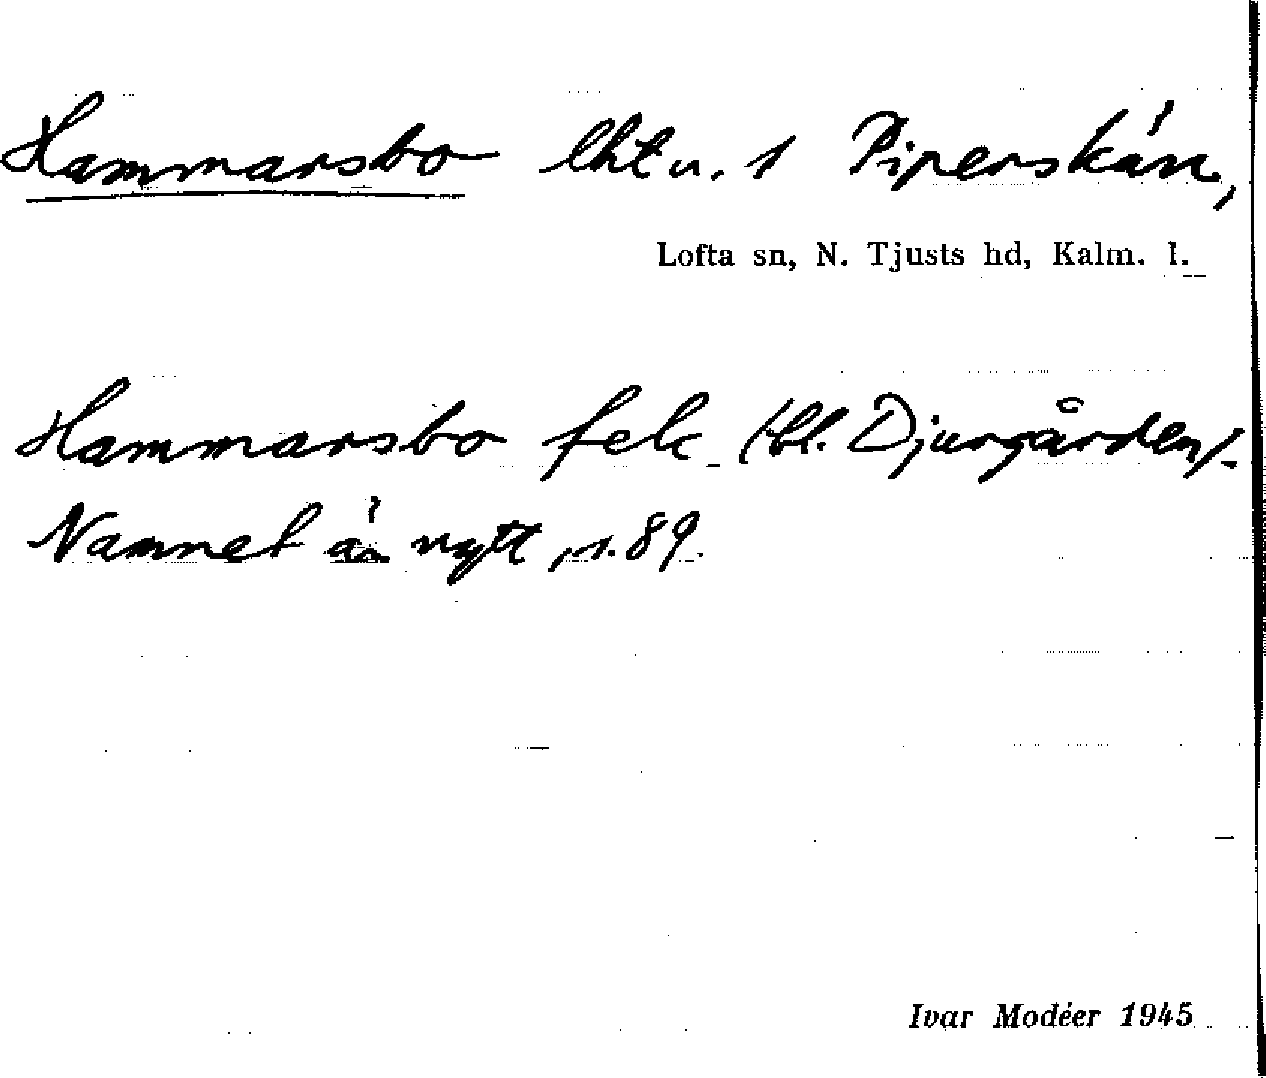 Hammarsbo lht u. 1 Piperskärr,
Lofta sn, N. Tjusts hd, Kalm. l.
Hammarsbo fek (bl. Djurgården).
Namnet är nytt, s. 89.
Ivar Modéer 1945